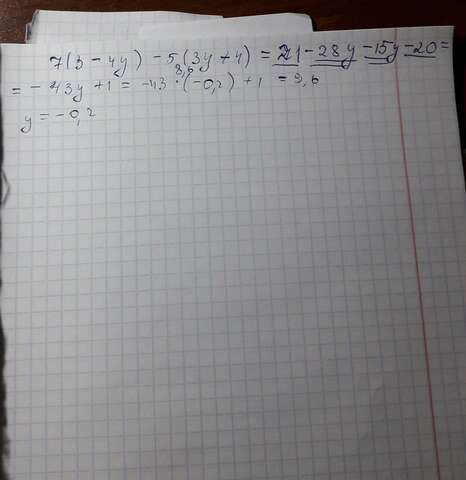 7(3 - 4y) - 5(3y + 4) = 21 - 28y - 15y - 20 =
8,6
= - 43y + 1 = -43 · (-0,2) + 1 = 9,6
y = -0,2